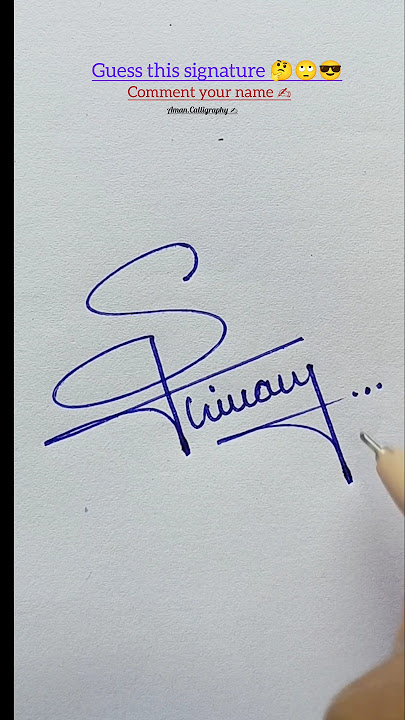 Guess this signature 🤔🙄😎
Comment your name ✍
Aman.Calligraphy ✍